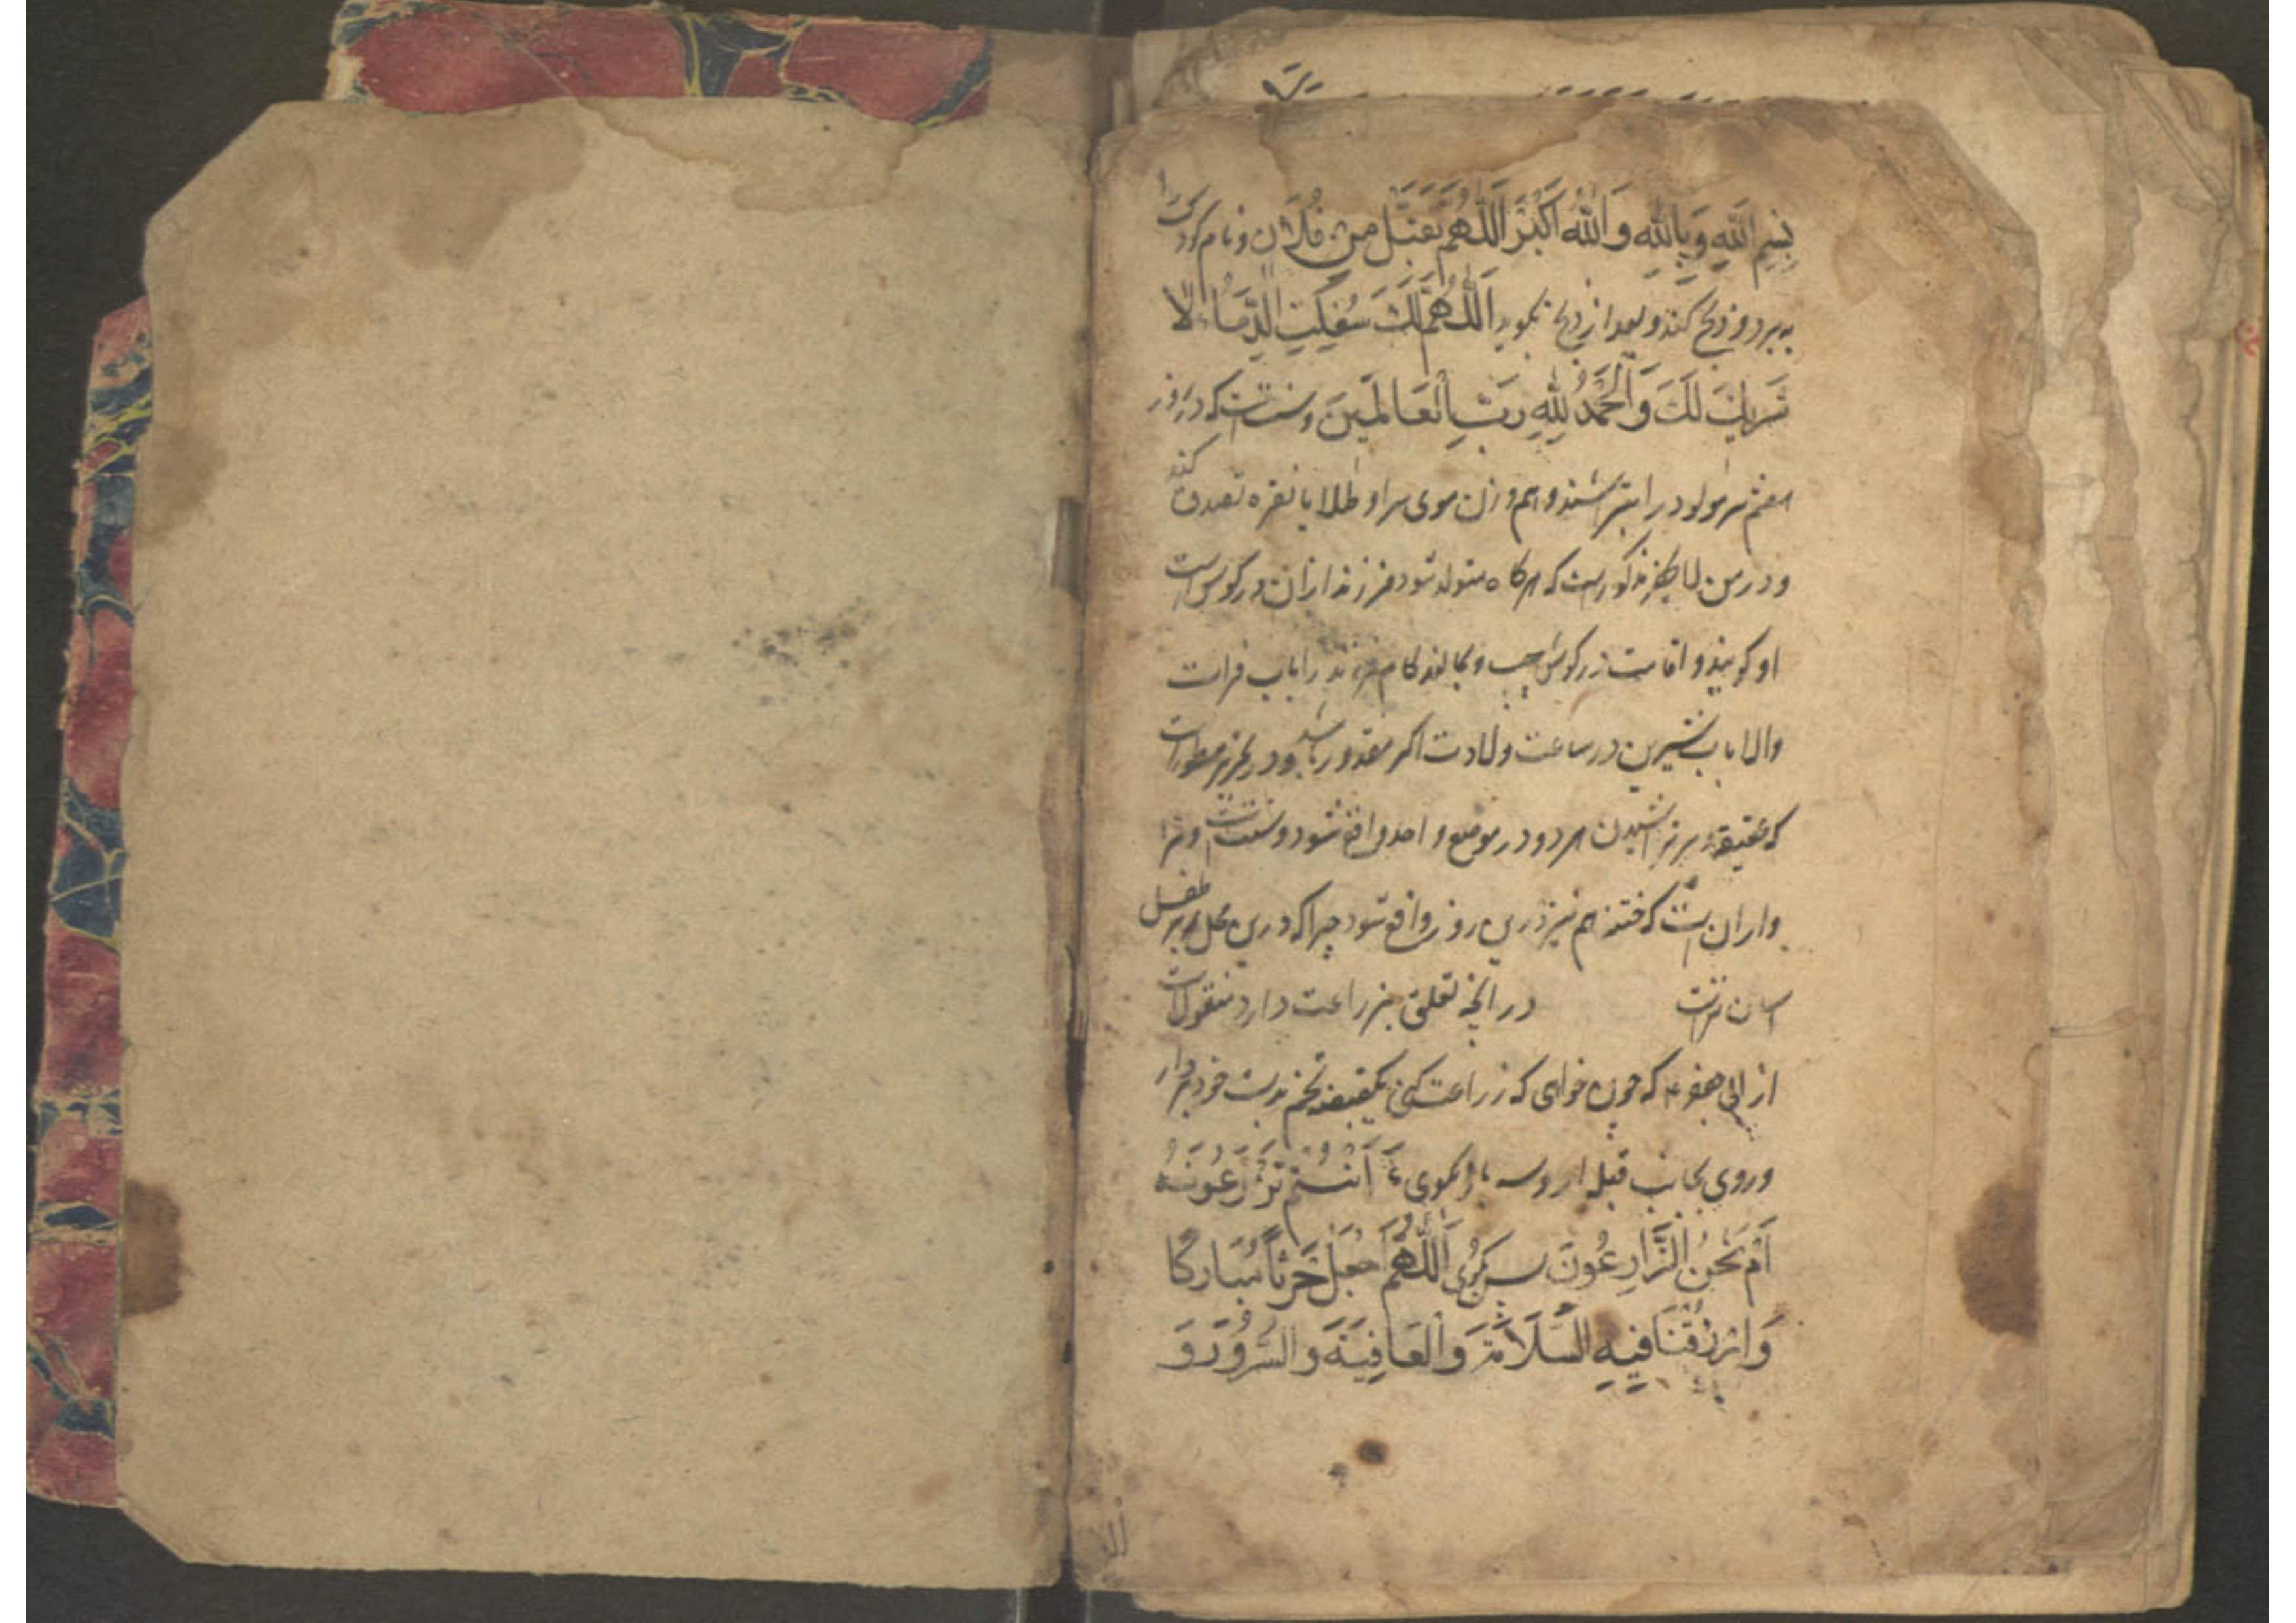 بِسْمِ اللهِ وَبِاللهِ وَاللهُ اَكْبَرُ اَللّٰهُمَّ تَقَبَّل مِنْ فُلَان و نام کودک را
ببرد و ذبح کند و بعد از ذبح بگوید اَللّٰهُمَّ لَكَ سُفِكَتِ الدِّمَاءُ لَا
شَرِيكَ لَكَ وَالْحَمْدُ لِلّٰهِ رَبِّ الْعَالَمِينَ و سنت است که در روز
هفتم سر مولود را بتراشند و هم وزن موی سر او طلا یا نقره تصدق کنند
و در من لا یحضر مذکور است که هرگاه متولد شود فرزند اذان در گوش راست
او گویند و اقامت در گوش چپ و بمالند کام فرزند را باب فرات
والا باب شیرین در ساعت ولادت اگر مقدور باشد و در تحریر مسطور است
که عقیقه و سر تراشیدن هر دو در موضع واحد واقع شود و سنت است و سزا
وار آن است که ختنه هم نیز درین روز واقع شود چرا که درین محل بر طفل
آسان تر است در آنچه تعلق بزراعت دارد منقول است
از ابی جعفر ع که چون خواهی که زراعت کنی یکقبضه تخم بدست خود بردار
و روی بجانب قبله ار و سه بار بگوی ءَاَنْتُمْ تَزْرَعُونَهُ
اَمْ نَحْنُ الزَّارِعُونَ پس بگوی اَللّٰهُمَّ اجْعَلْ حَرْثًا مُبَارَكًا
وَارْزُقْنَا فِيهِ السَّلَامَةَ وَالْعَافِيَةَ وَالسُّرُورَ وَ